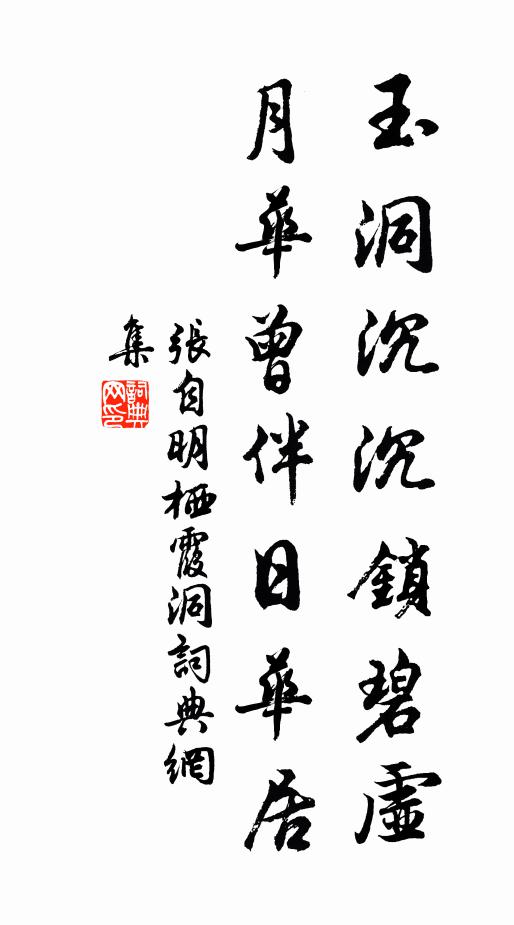 玉洞沉沉鎖碧虛
月華曾伴日華居
張自明栖霞洞詞典網
集
詞典
网印